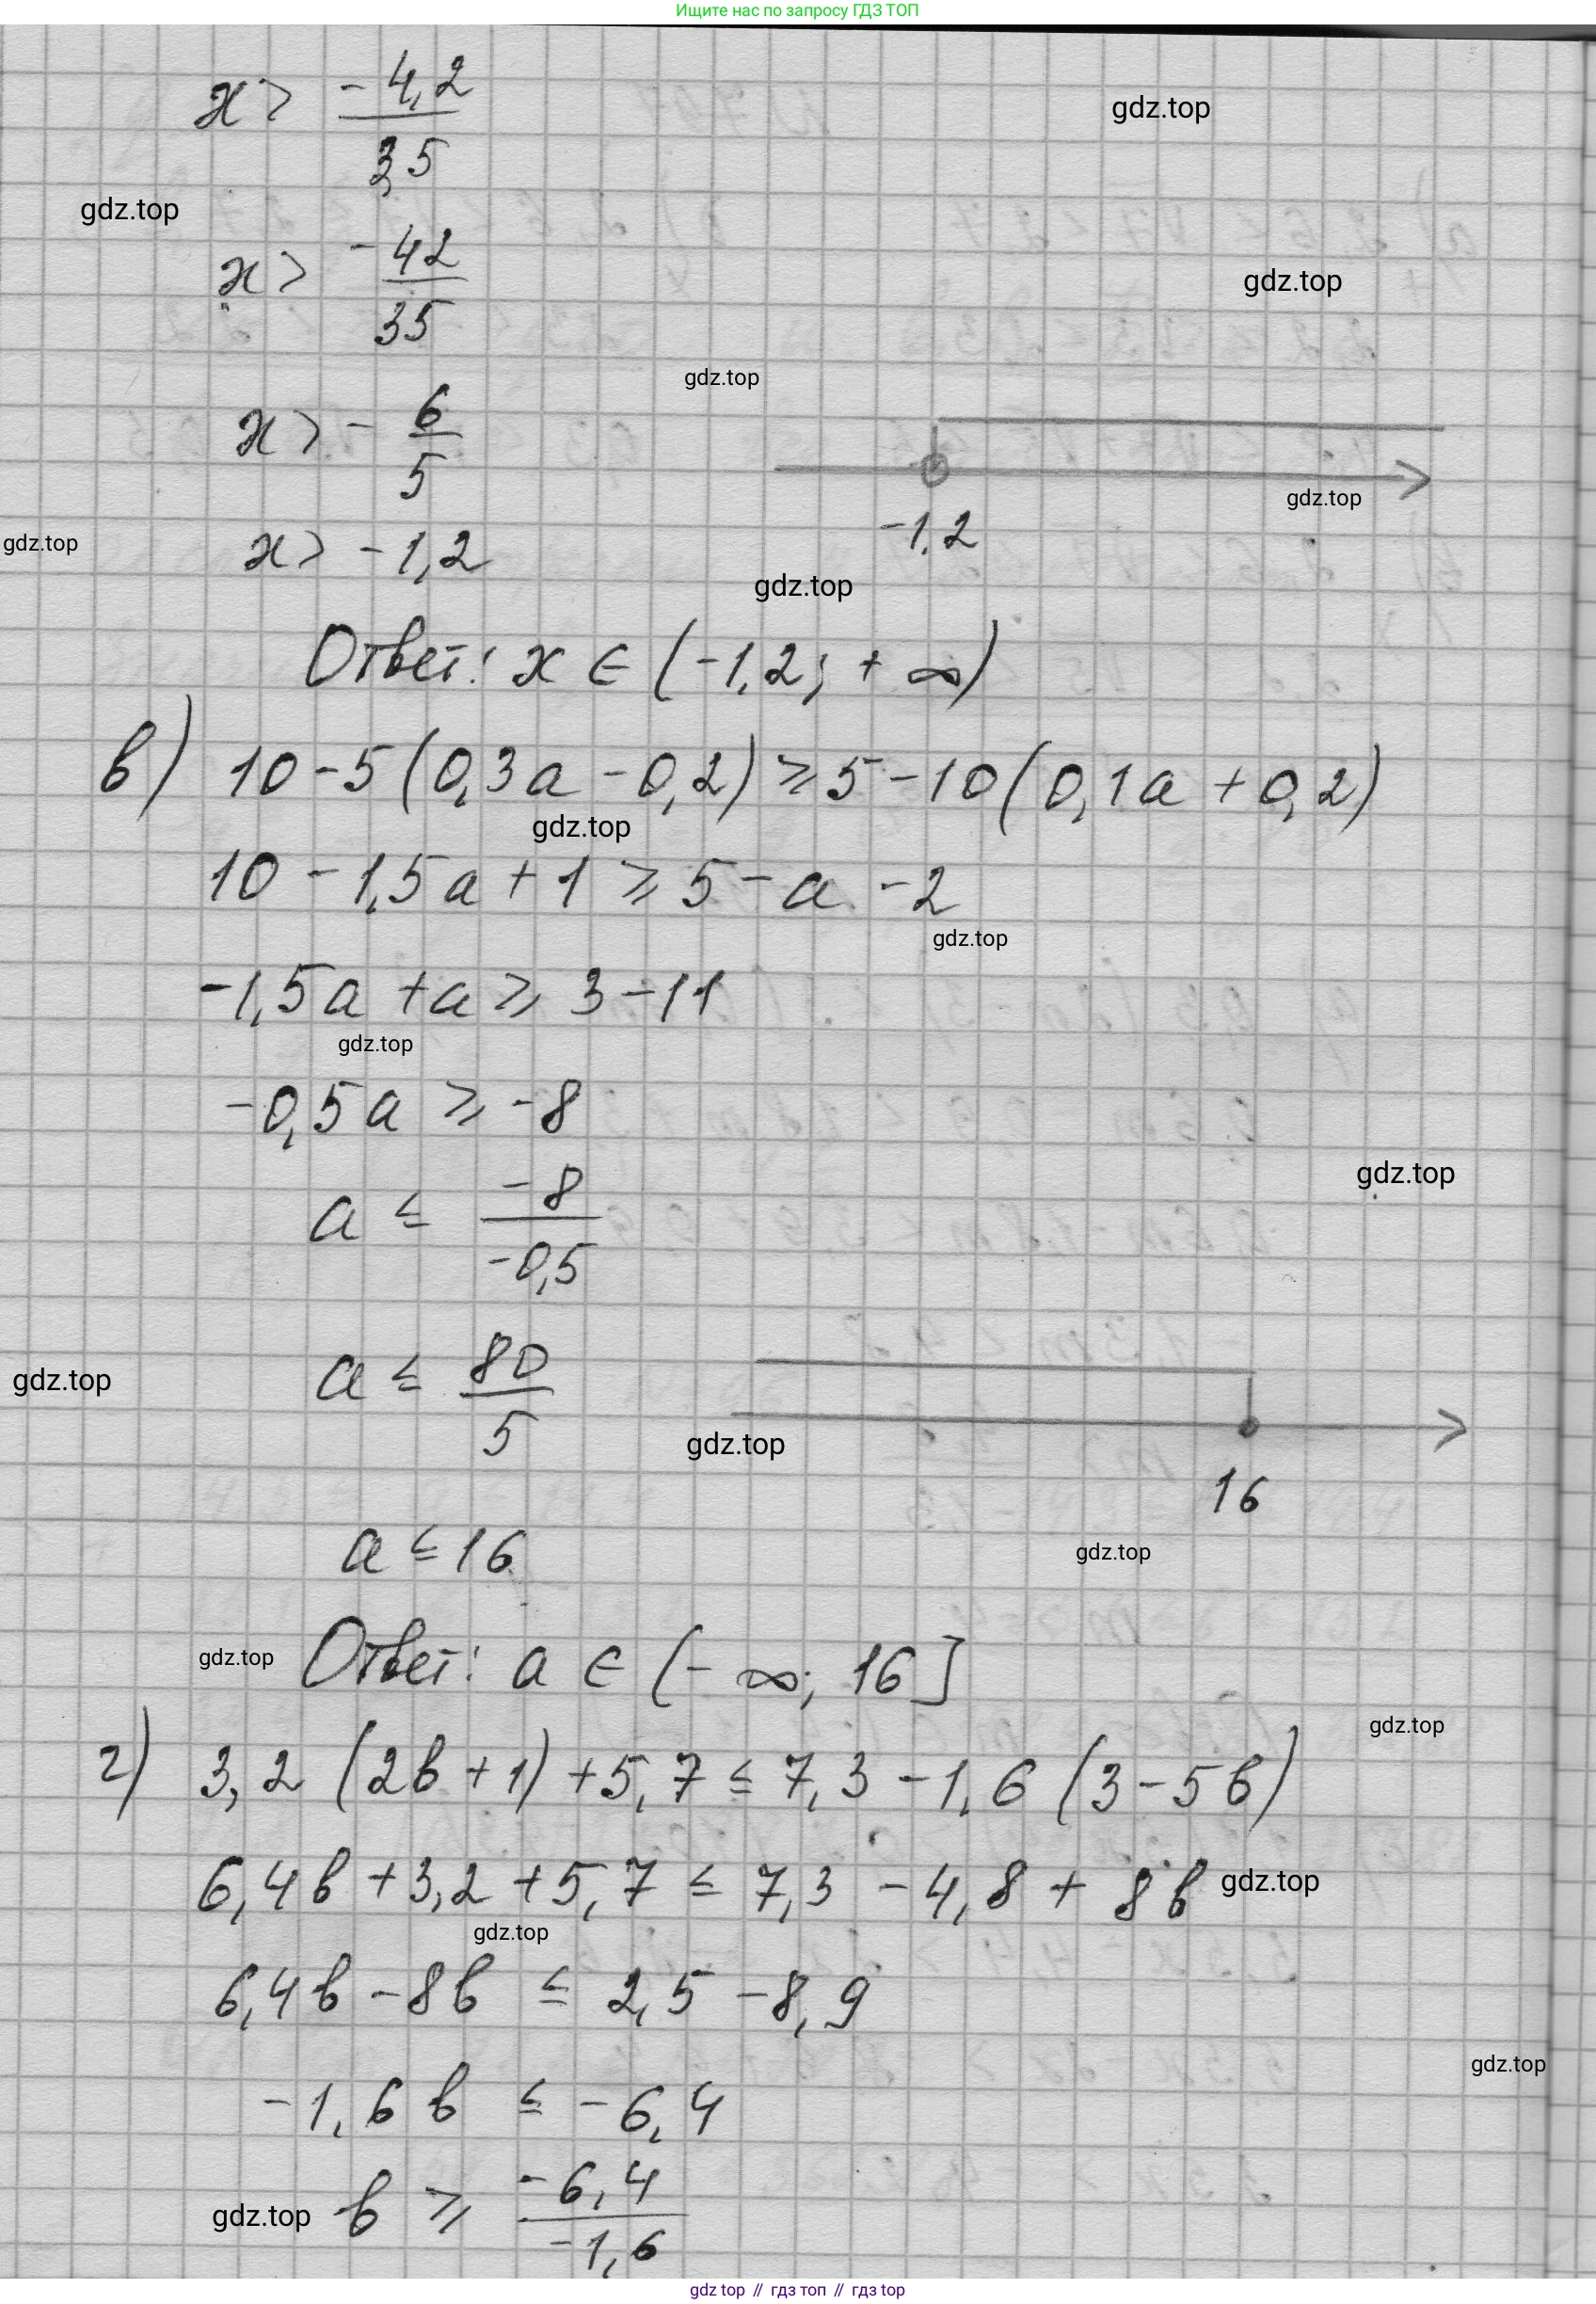 Ищите нас по запросу ГДЗ ТОП
x > -4,2/3,5
gdz.top
gdz.top
x > -42/35
gdz.top
gdz.top
x > -6/5
gdz.top
gdz.top
x > -1,2
-1,2
gdz.top
Ответ: x ∈ (-1,2; + ∞)
в) 10-5(0,3a-0,2) ⩾ 5-10(0,1a+0,2)
gdz.top
10-1,5a+1 ⩾ 5-a-2
gdz.top
-1,5a+a ⩾ 3-11
gdz.top
-0,5a ⩾ -8
gdz.top
a ≤ -8/-0,5
gdz.top
a ≤ 80/5
gdz.top
16
a ≤ 16
gdz.top
gdz.top
Ответ: a ∈ (-∞; 16]
gdz.top
г) 3,2(2b+1)+5,7 ≤ 7,3-1,6(3-5b)
6,4b+3,2+5,7 ≤ 7,3-4,8+8b
gdz.top
gdz.top
6,4b-8b ≤ 2,5-8,9
gdz.top
-1,6b ≤ -6,4
gdz.top
b ⩾ -6,4/-1,6
gdz top // гдз топ // гдз top